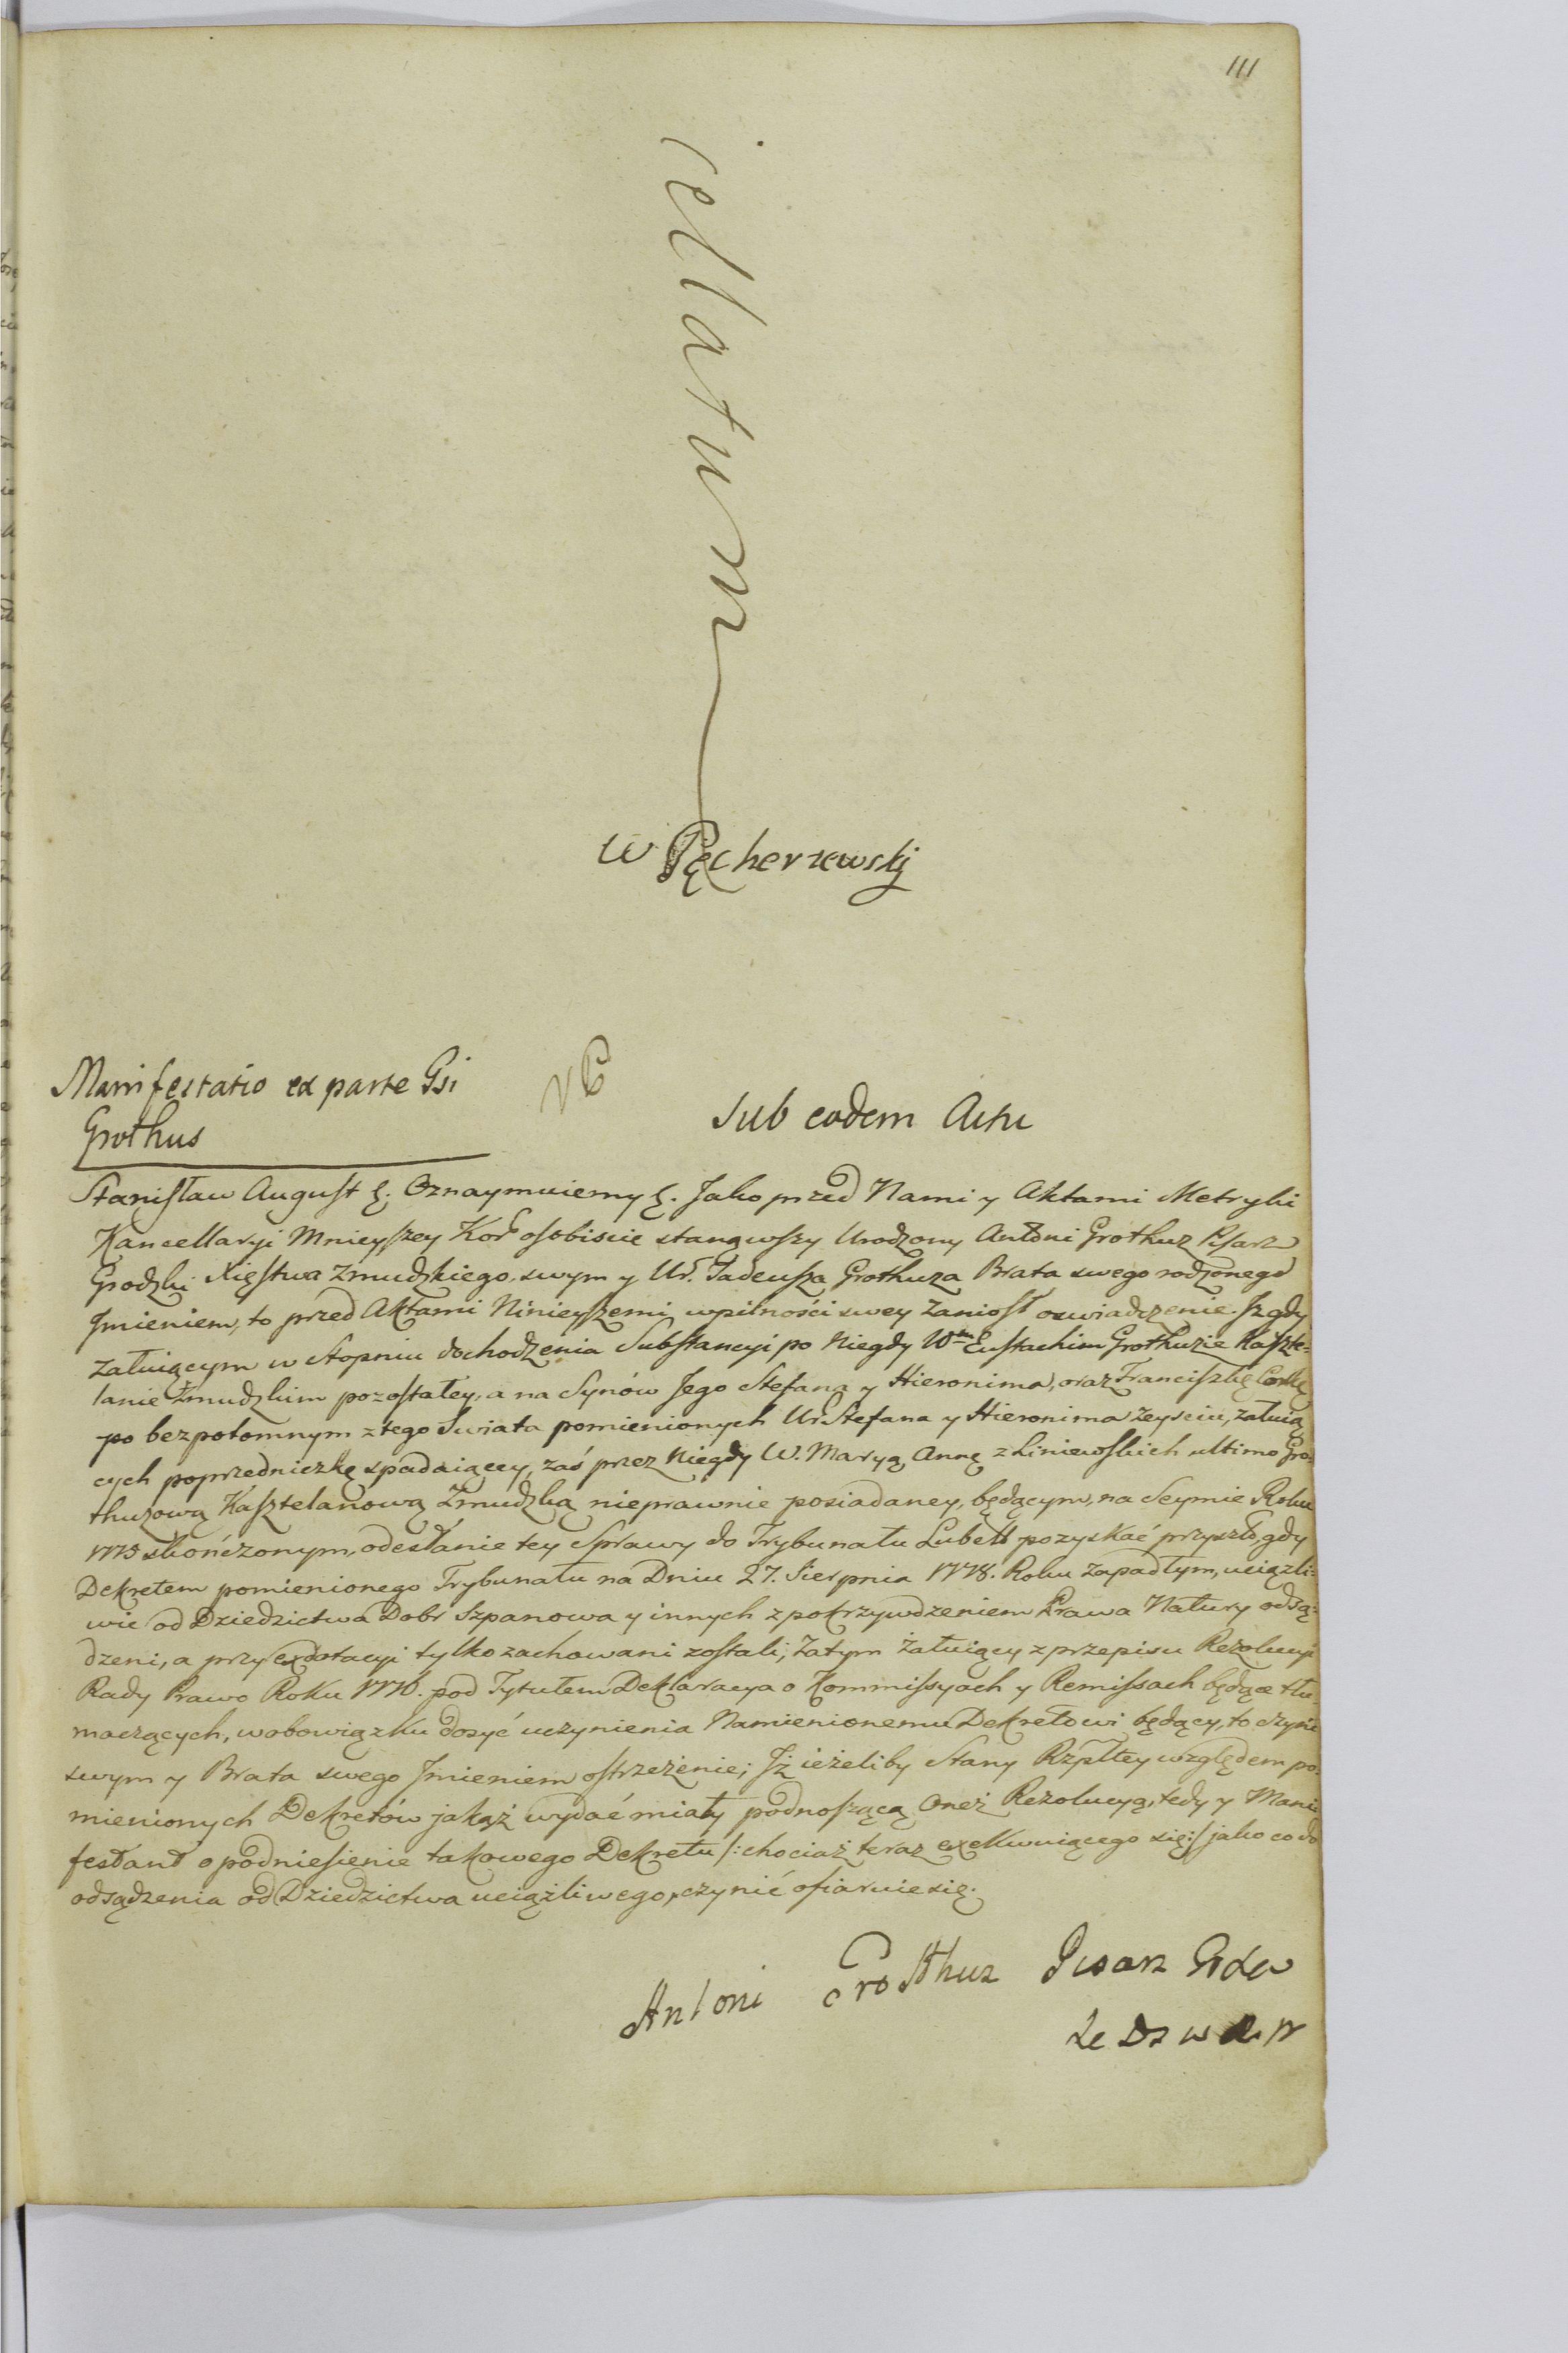 111
cellatum
W Pęcherzewskj
Manifestatio ex parte Gsi
Grothus
Sub eodem Actu
Stanisław August &. Oznaymuiemy &. Jako przed Nami y Aktami Metryki
Kancellaryi Mnieyszey Kor osobiscie stanąwszy Urodzony Antoni Grothuz Pisarz
Grodzki Xięstwa Zmudzkiego, swym y Ur. Tadeusza Grothuza Brata swego rodzonego
Jmieniem, to przed Aktami Ninieyszemi wpilności swey zaniosł oswiadczenie. Jz gdy
załuiącym w Stopniu dochodzenia Substancyi po Niegdy Wm Eustachim Grothuzie Kaszte-
lanie Żmudzkim pozostałey, a na Synów Jego Stefana y Hieronima, oraz Franciszkę Corkę
po bezpotomnym z tego Swiata pomienionych Ur. Stefana y Hieronima zeysciu, załuią
cych poprzedniczkę spadaiącey, zaś przez Niegdy W. Maryą Annę z Liniewskich ultimo Gro-
thuzową Kasztelanową Żmudzką nieprawnie posiadaney, będącym, na Seymie Roku
1775 skończonym, odesłanie tey Sprawy do Trybunału Lubell pozyskać przyszło, gdy
Dekretem pomienionego Trybunału na Dniu 27. Sierpnia 1778. Roku zapadłym, uciązli-
wie od Dziedzictwa Dobr Szpanowa y innych z pokrzywdzeniem Prawa Natury odsą-
dzeni, a przy exdotacyi tylko zachowani zostali; Zatym żałuiący z przepisu Rezolucyi
Rady Prawo Roku 1776. pod Tytułem Deklaracya o Kommissyach y Remissach będące tłu-
maczących, w obowiązku dosyć uczynienia Namienionemu Dekretowi będący, to czyni
swym y Brata swego Jmieniem ostrzeżenie; Jż ieżeliby Stany Rzpltey względem po-
mienionych Dekretów jakąż wydać miały podnoszącą Oneż Rezolucyą, tedy y Mani-
festant o podniesienie takowego Dekretu /: chociaż teraz exekwuiącego się :/ jako co do
odsądzenia od Dziedzictwa uciążliwego, czynić ofiaruie się.
Antoni Grothuz Pisarz